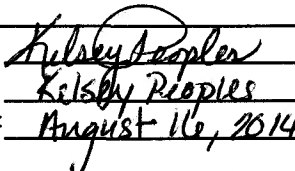 Kelsey Peoples
Kelsey Peoples
August 16, 2014